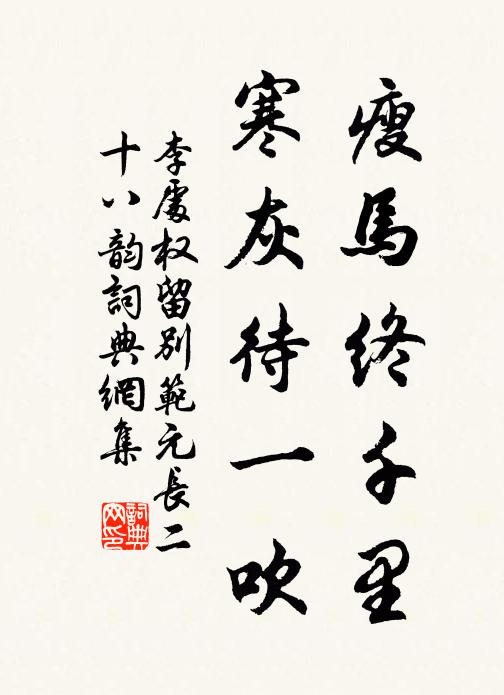 瘦馬終千里
寒灰待一吹
李處权留別範元長二
十八韵詞典網集
詞典
网印